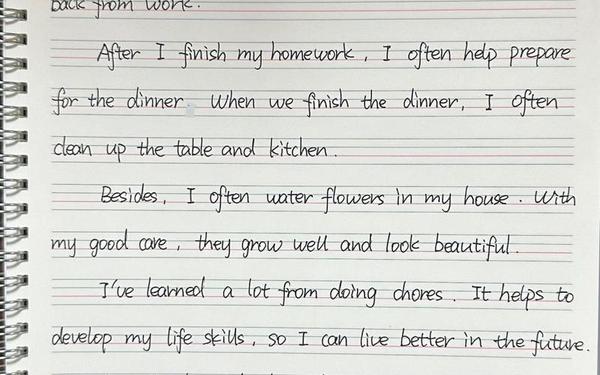 back from work.
After I finish my homework, I often help prepare
for the dinner. When we finish the dinner, I often
clean up the table and kitchen.
Besides, I often water flowers in my house. With
my good care, they grow well and look beautiful.
I've learned a lot from doing chores. It helps to
develop my life skills, so I can live better in the future.